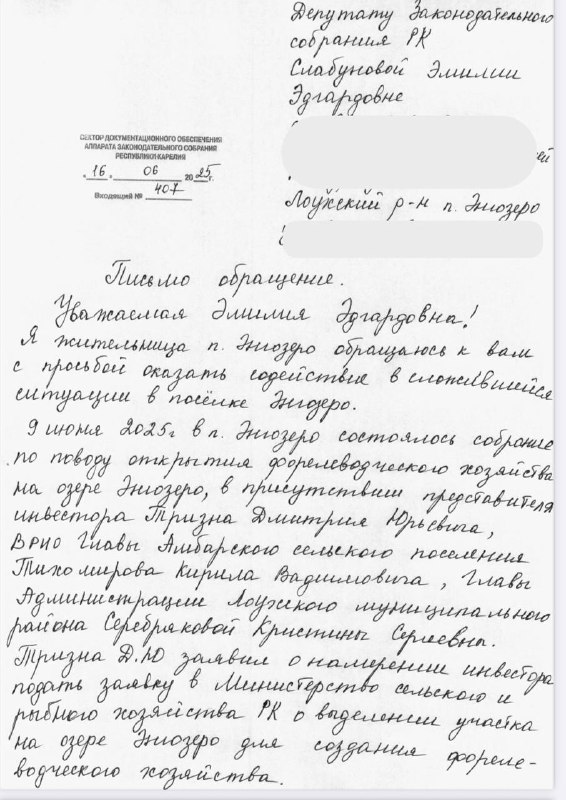 Депутату Законодательного
собрания РК
Слабуновой Эмилии
Эдгардовне
Лоухский р-н п. Энгозеро
СЕКТОР ДОКУМЕНТАЦИОННОГО ОБЕСПЕЧЕНИЯ
АППАРАТА ЗАКОНОДАТЕЛЬНОГО СОБРАНИЯ
РЕСПУБЛИКИ КАРЕЛИЯ
" 16 " 06 2025г.
Входящий № 407
Письмо обращение.
Уважаемая Эмилия Эдгардовна!
Я жительница п. Энгозеро обращаюсь к вам
с просьбой оказать содействие в сложившейся
ситуации в посёлке Энгозеро.
9 июня 2025г в п. Энгозеро состоялось собрание
по поводу открытия форелеводческого хозяйства
на озере Энгозеро, в присутствии представителя
инвестора Тризна Дмитрия Юрьевича,
ВРИО Главы Амбарского сельского поселения
Тихомирова Кирила Вадимовича, Главы
Администрации Лоухского муниципального
района Серебряковой Кристины Сергеевны.
Тризна Д.Ю заявил о намерении инвестора
подать заявку в Министерство сельского и
рыбного хозяйства РК о выделении участка
на озере Энгозеро для создания фореле-
водческого хозяйства.